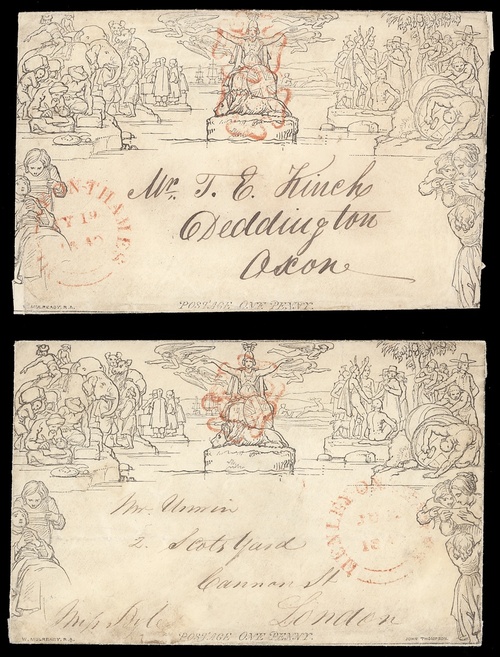 Mr. T. E. Kinch
Deddington
Oxon
ON-THAMES
19
W. MULREADY. R.A.
POSTAGE ONE PENNY.
Mr Unwin
2. Scots Yard
Cannon St
London
HENLEY ON
W. MULREADY. R.A.
POSTAGE ONE PENNY.
JOHN THOMPSON.